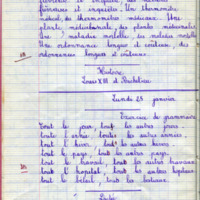 fiévreux et inquiets. Une thermomètre
médical, des thermomètres médicaux. Une
plante médicinale, des plantes médicinales
Une maladie mortelle, des maladies mortelles
Une ordonnance longue et coûteuse, des
ordonnances longues et coûteuses
Histoire
Louis XIII et Richelieu
Lundi 25 janvier
Exercice de grammaire
tout le jour, tout les autres jours.
tout l'hiver, tout les autres hivers.
tout le pays, tout les autres pays.
tout le travail, tout les autres travaux
tout l'hôpital, tout les autres hôpitaux
tout le bétail, tout les bestiaux.